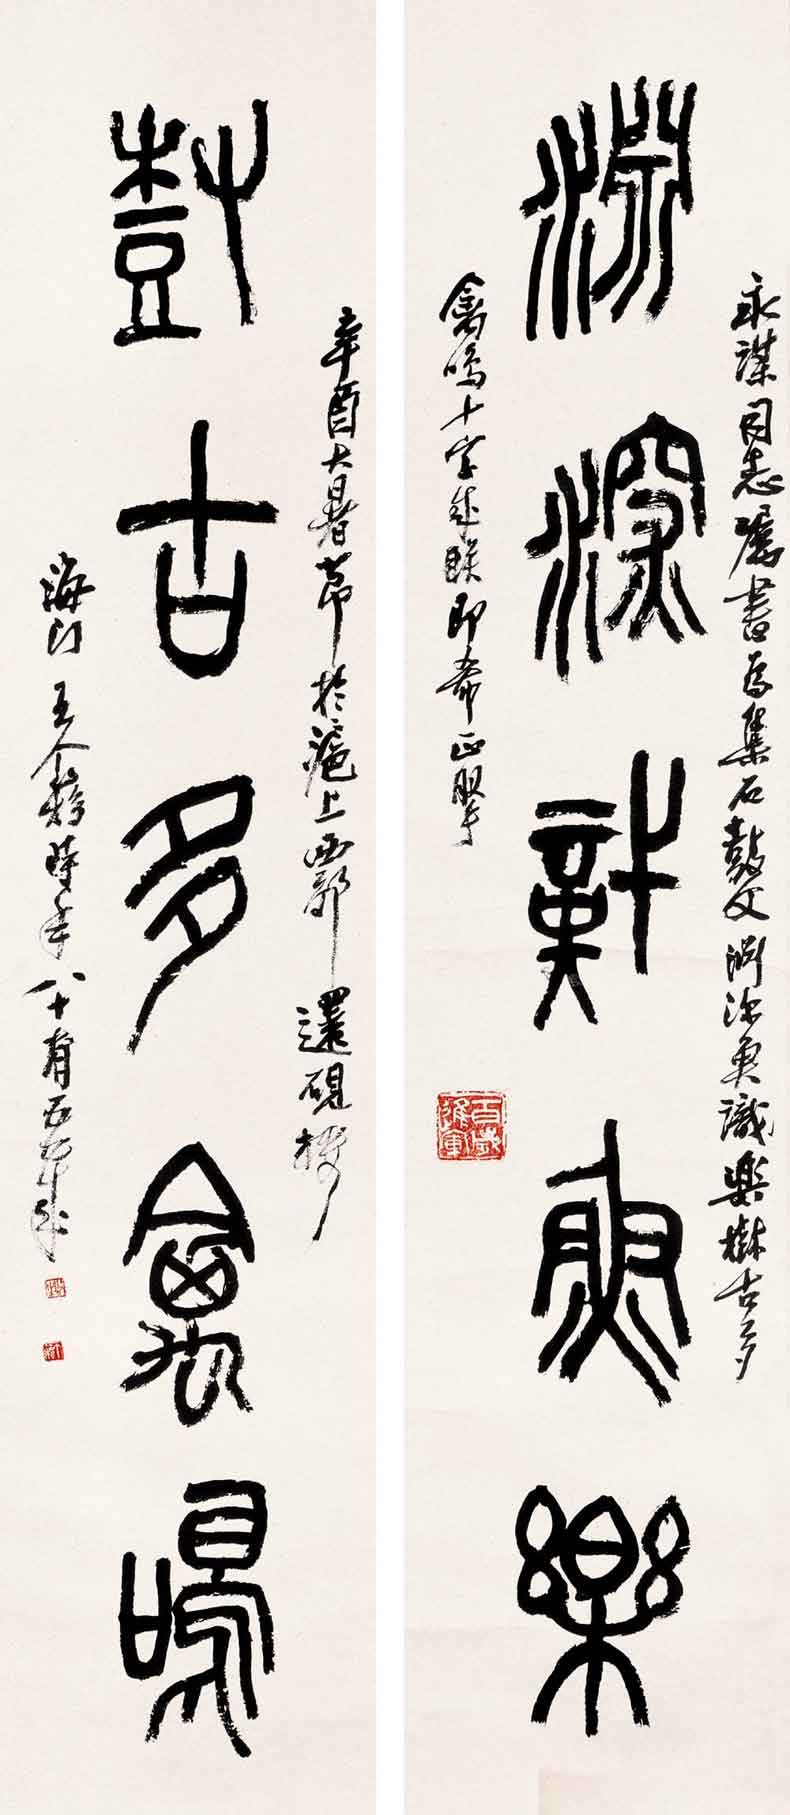 淵深識魚樂
永謀同志屬書為集石鼓文淵深魚識樂樹古多
禽鳴十字成聯即希正腕
樹古多禽鳴
辛酉大暑節於滬上西郭還硯樓
海門王个簃時年八十有五
百歲進軍